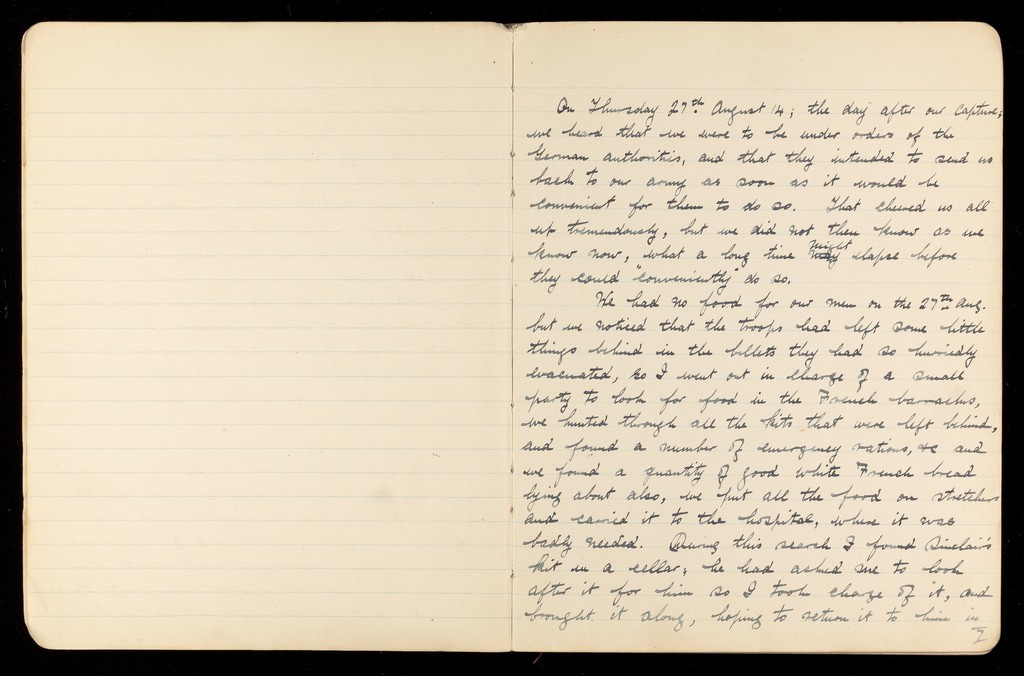 On Thursday 27th August 14; the day after our capture;
we heard that we were to be under orders of the
German authorities, and that they intended to send us
back to our army as soon as it would be
convenient for them to do so. That cheered us all
up tremendously, but we did not then know as we
know now, what a long time might elapse before
they could "conveniently" do so.
We had no food for our men on the 27th Aug.
but we noticed that the troops had left some little
things behind in the billets they had so hurriedly
evacuated, so I went out in charge of a small
party to look for food in the French barracks,
we hunted through all the kits that were left behind,
and found a number of emergency rations, &c and
we found a quantity of good white French bread
lying about also, we put all the food on stretchers
and carried it to the hospital, where it was
badly needed. During this search I found Sinclair's
kit in a cellar; he had asked me to look
after it for him so I took charge of it, and
brought it along, hoping to return it to him in